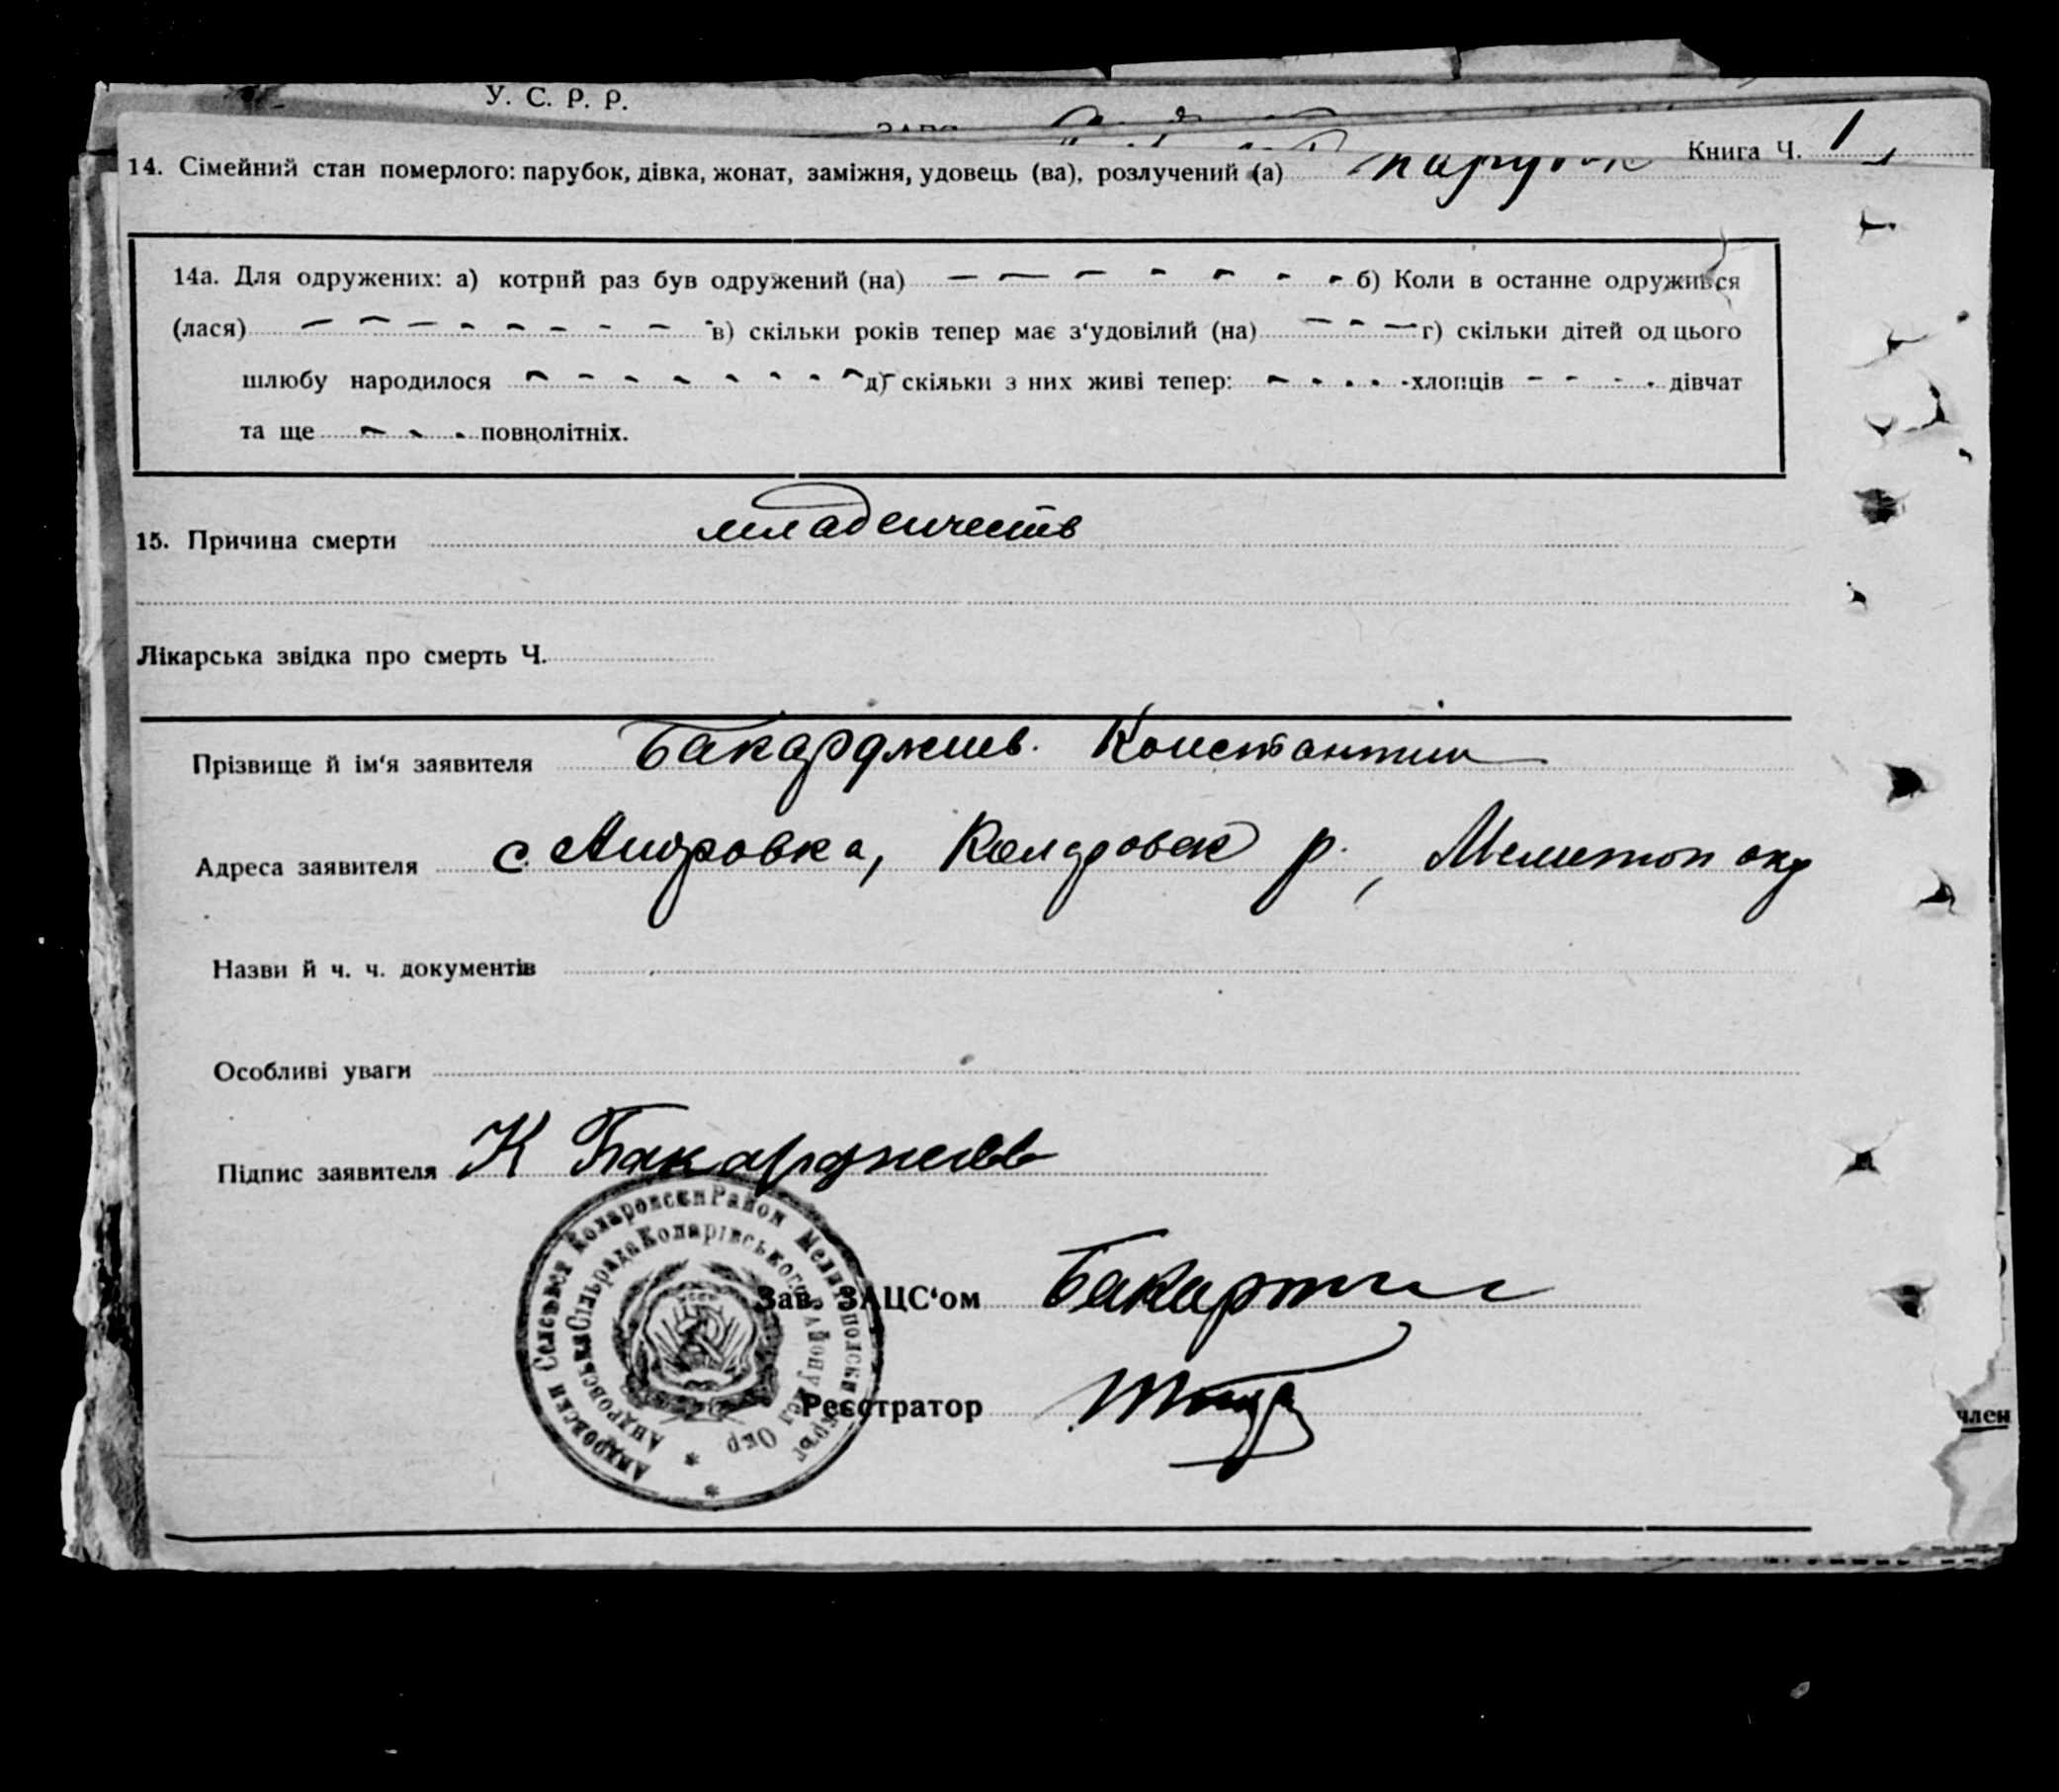 У. С. Р. Р.
Книга Ч. 1
14. Сімейний стан померлого: парубок, дівка, жонат, заміжня, удовець (ва), розлучений (а) парубок
14а. Для одружених: а) котрий раз був одружений (на) — — — - - - - - б) Коли в останне одружився
(лася) — — — - - - - - - в) скільки років тепер має з‘удовілий (на) — - — г) скільки дітей од цього
шлюбу народилося - - - - - - - - д) скільки з них живі тепер: - - - - - хлопців - - - - дівчат
та ще - - - повнолітніх.
15. Причина смерти младенчеств
Лікарська звідка про смерть Ч.
Прізвище й ім‘я заявителя Бакарджиев. Константин
Адреса заявителя с. Андровка, р., Мелитоп окр
Назви й ч. ч. документів
Особливі уваги
Підпис заявителя К Бакарджиев
Андровски Селсъвет Коларовски Район Мелитополски Окръг
Андровська Сільрада Коларівського Району Мел Окр
Зав. ЗАЦС‘ом
Реєстратор
член